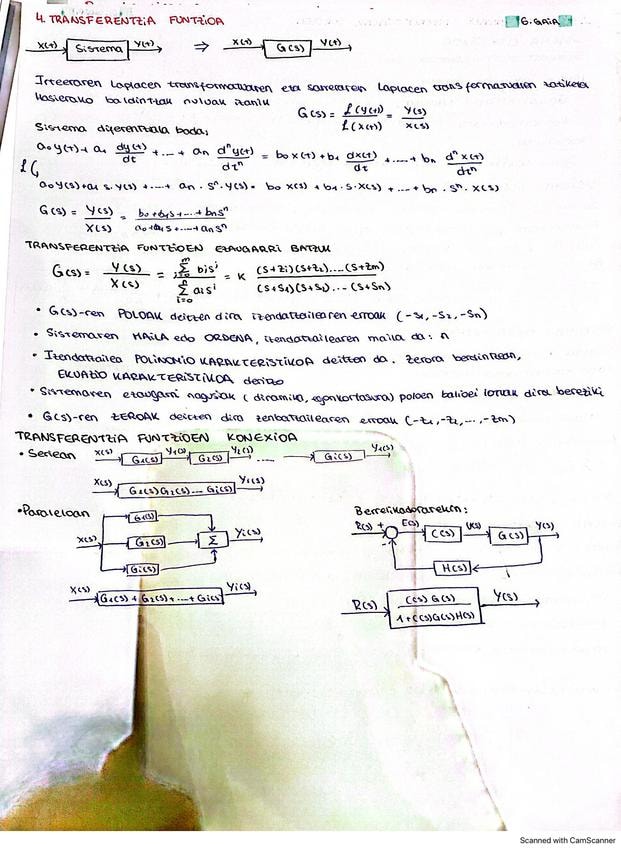 4. TRANSFERENTZIA FUNTZIOA
6. GAIA
X(t) Sistema Y(t) ⇒ X(t) G(s) Y(t)
Irteeraren Laplacen transformatuaren eta sarreraren Laplacen transformatuaren zatiketa
hasierako baldintzak nuluak izanik
G(s) = ℒ(Y(t)) / ℒ(X(t)) = Y(s) / X(s)
Sistema diferentziala bada;
a₀y(t) + a₁ dy(t)/dt + .... + an dⁿy(t)/dtⁿ = b₀x(t) + b₁ dx(t)/dt + .... + bn dⁿx(t)/dtⁿ
ℒ
a₀y(s) + a₁ s·y(s) + .... + an·sⁿ·y(s) = b₀ x(s) + b₁·s·X(s) + ... + bn·sⁿ·X(s)
G(s) = Y(s)/X(s) = b₀+b₁s+...+bnsⁿ / a₀+a₁s+...+ansⁿ
TRANSFERENTZIA FUNTZIOEN EZAUGARRI BATZUK
G(s) = Y(s)/X(s) = Σ(i=0, m) bisⁱ / Σ(i=0, n) aisⁱ = K (s+z₁)(s+z₂)....(s+zm) / (s+s₁)(s+s₂)...(s+sn)
• G(s)-ren POLOAK deitzen dira izendatzailearen erroak (-s₁, -s₂, -sn)
• Sistemaren MAILA edo ORDENA, izendatzailearen maila da: n
• Izendatzailea POLINOMIO KARAKTERISTIKOA deitzen da. Zerora berdintzean,
EKUAZIO KARAKTERISTIKOA deritzo
• Sistemaren ezaugarri nagusiak (dinamika, egonkortasuna) poloen balioei lotuak dira bereziki
• G(s)-ren ZEROAK deitzen dira zenbatzailearen erroak (-z₁, -z₂, ..., -zm)
TRANSFERENTZIA FUNTZIOEN KONEXIOA
• Seriean X(s) G₁(s) Y₁(s) G₂(s) Y₂(s) ..... Gi(s) Yi(s)
X(s) G₁(s)G₂(s)...Gi(s) Yi(s)
• Paraleloan
X(s) G₁(s) G₂(s) Gi(s) Σ Yi(s)
X(s) G₁(s) + G₂(s) + .... + Gi(s) Yi(s)
Berrelikadurarekin:
R(s) + - E(s) C(s) U(s) G(s) Y(s)
H(s)
R(s) C(s) G(s) / 1+C(s)G(s)H(s) Y(s)
Scanned with CamScanner